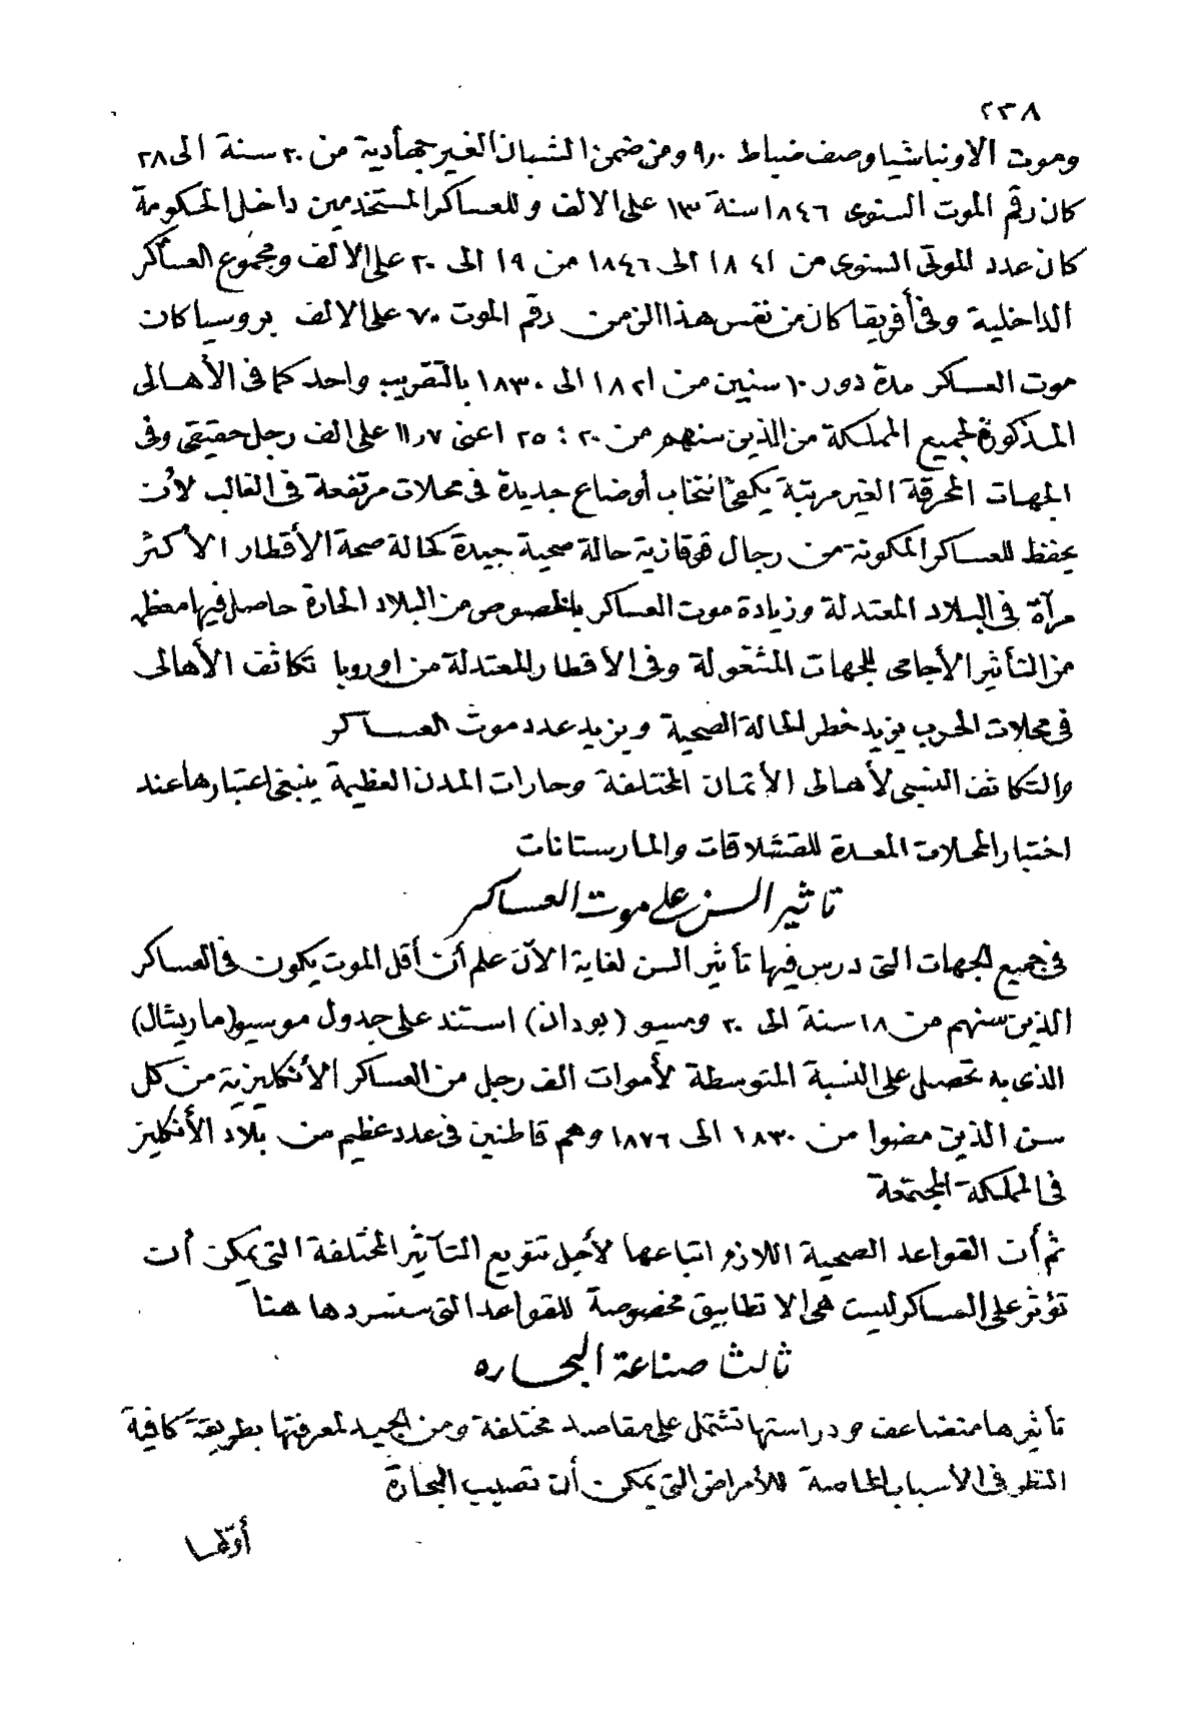 ٢٣٨
وموت الاونباشيا وصف ضباط ٩٫٠ ومن ضمن الشبان الغير جهادية من ٢٠ سنة الى ٢٨
كان رقم الموت السنوى ١٨٤٦ سنة ١٣ على الالف وللعساكر المستخدمين داخل الحكومة
كان عدد الموتى السنوى من ١٨٤١ الى ١٨٤٦ من ١٩ الى ٢٠ على الألف ومجموع العساكر
الداخلية وفى أفريقا كان من نفس هذا الزمن رقم الموت ٧٠ على الالف بروسيا كان
موت العساكر مدة دور ١٠ سنين من ١٨٢١ الى ١٨٣٠ بالتقريب واحد كما فى الأهالى
المذكورة لجميع المملكة من الذين سنهم من ٢٠ : ٢٥ اعنى ١١٫٧ على الف رجل حقيقى وفى
الجهات المحرقة الغير مرتبة يكفى انتخاب أوضاع جديدة فى محلات مرتفعة فى الغالب لأن
يحفظ للعساكر المكونة من رجال قوقازية حالة صحية جيدة كحالة صحة الأقطار الأكثر
مرآة فى البلاد المعتدلة وزيادة موت العساكر بالخصوص من البلاد الحارة حاصل فيها معظم
من التأثير الأجامى للجهات المشغولة وفى الاقطار المعتدلة من اوروبا تكاثف الأهالى
فى محلات الحرب يزيد خطر الحالة الصحية ويزيد عدد موت العساكر
والتكاثف النسبى لأهالى الأثمان المختلفة وحارات المدن العظيمة ينبغى اعتبارها عند
اختبار المحلات المعدة للقشلاقات والمارستانات
تاثير السن على موت العساكر
فى جميع الجهات التى درس فيها تأثير السن لغاية الآن علم أن أقل الموت يكون فى العساكر
الذين سنهم من ١٨ سنة الى ٢٠ ومسيو (بودان) استند على جدول موسيو (ماريثال)
الذى به تحصل على النسبة المتوسطة لأموات الف رجل من العساكر الأنكليزية من كل
سن الذين مضوا من ١٨٣٠ الى ١٨٧٦ وهم قاطنين فى عدد عظيم من بلاد الأنكليز
فى المملكة المجتمعة
ثم أن القواعد الصحية اللازم اتباعها لأجل تنويع التأثير المختلفة التى يمكن أن
تؤثر على العساكر ليست هى الا تطابيق مخصوصة للقواعد التى سنسردها هنا
ثالث صناعة البحاره
تأثيرها متضاعف ودراستها تشتمل على مقاصد مختلفة ومن الجيد لمعرفتها بطريقة كافية
النظر فى الأسباب الخاصة للأمراض التى يمكن أن تصيب البحارة
أولها